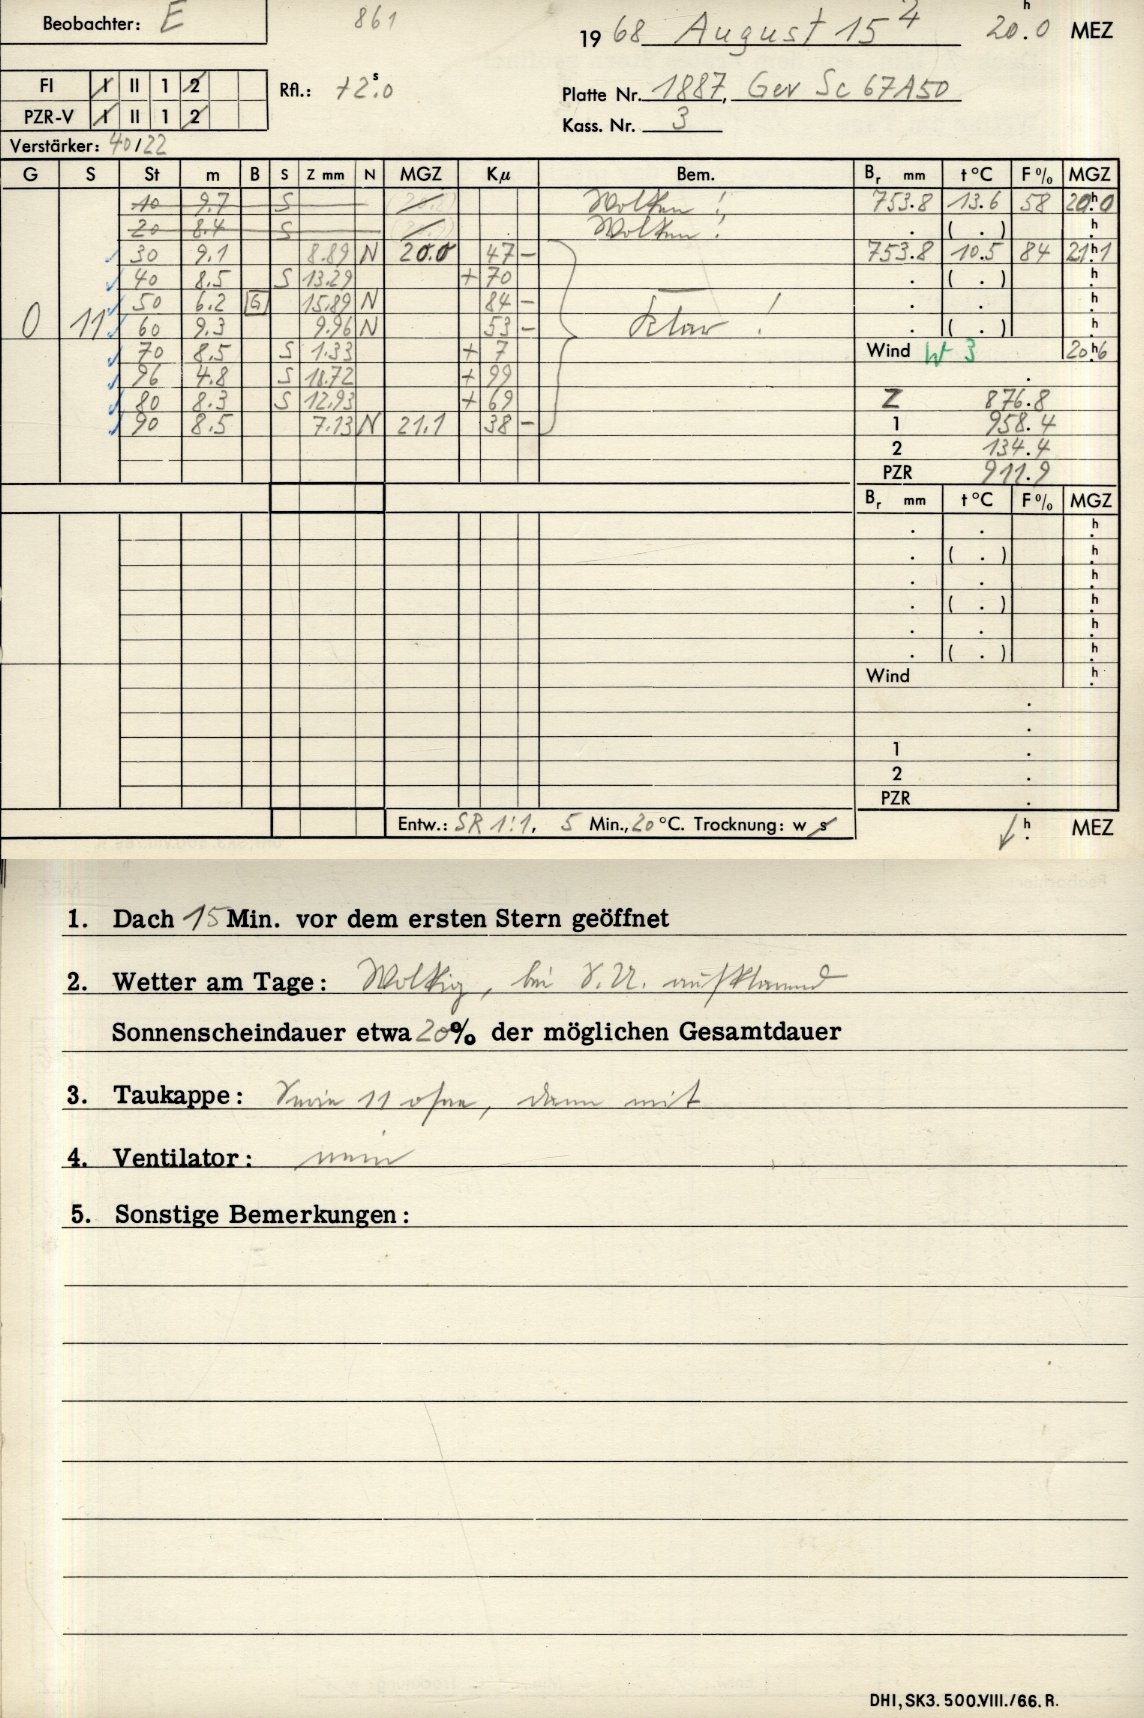 Beobachter: E 861 1968 August 15 20h.0 MEZ
FI I II 1 2 Rfl.: +2s.0 Platte Nr. 1887, Gev Sc 67A50
PZR-V I II 1 2 Kass. Nr. 3
Verstärker: 40/22
G S St m B S Z mm N MGZ Kµ Bem. Br mm t°C F% MGZ
10 9.7 S Wolken! 753.8 13.6 58 20h.0
20 8.4 S Wolken! . ( . ) h.
30 9.1 8.89 N 20.0 47 – 753.8 10.5 84 21h.1
40 8.5 S 13.29 + 70 . ( . ) h.
50 6.2 G 15.89 N 84 – . . h.
0 11 60 9.3 9.96 N 53 – Klar! . ( . ) h.
70 8.5 S 1.33 + 7 Wind W 3 20h.6
96 4.8 S 18.72 + 99 .
80 8.3 S 12.93 + 69 Z 876.8
90 8.5 7.13 N 21.1 38 – 1 958.4
2 134.4
PZR 911.9
Br mm t°C F% MGZ
. . h.
. ( . ) h.
. . h.
. ( . ) h.
. . h.
. ( . ) h.
Wind h.
.
.
1 .
2 .
PZR .
Entw.: SR 1:1, 5 Min., 20 °C. Trocknung: w s h. MEZ
1. Dach 15 Min. vor dem ersten Stern geöffnet
2. Wetter am Tage: Wolkig, bei S.U. aufklarend
Sonnenscheindauer etwa 20% der möglichen Gesamtdauer
3. Taukappe: Serie 11 ohne, dann mit
4. Ventilator: nein
5. Sonstige Bemerkungen:
DHI, SK3. 500.VIII./66. R.